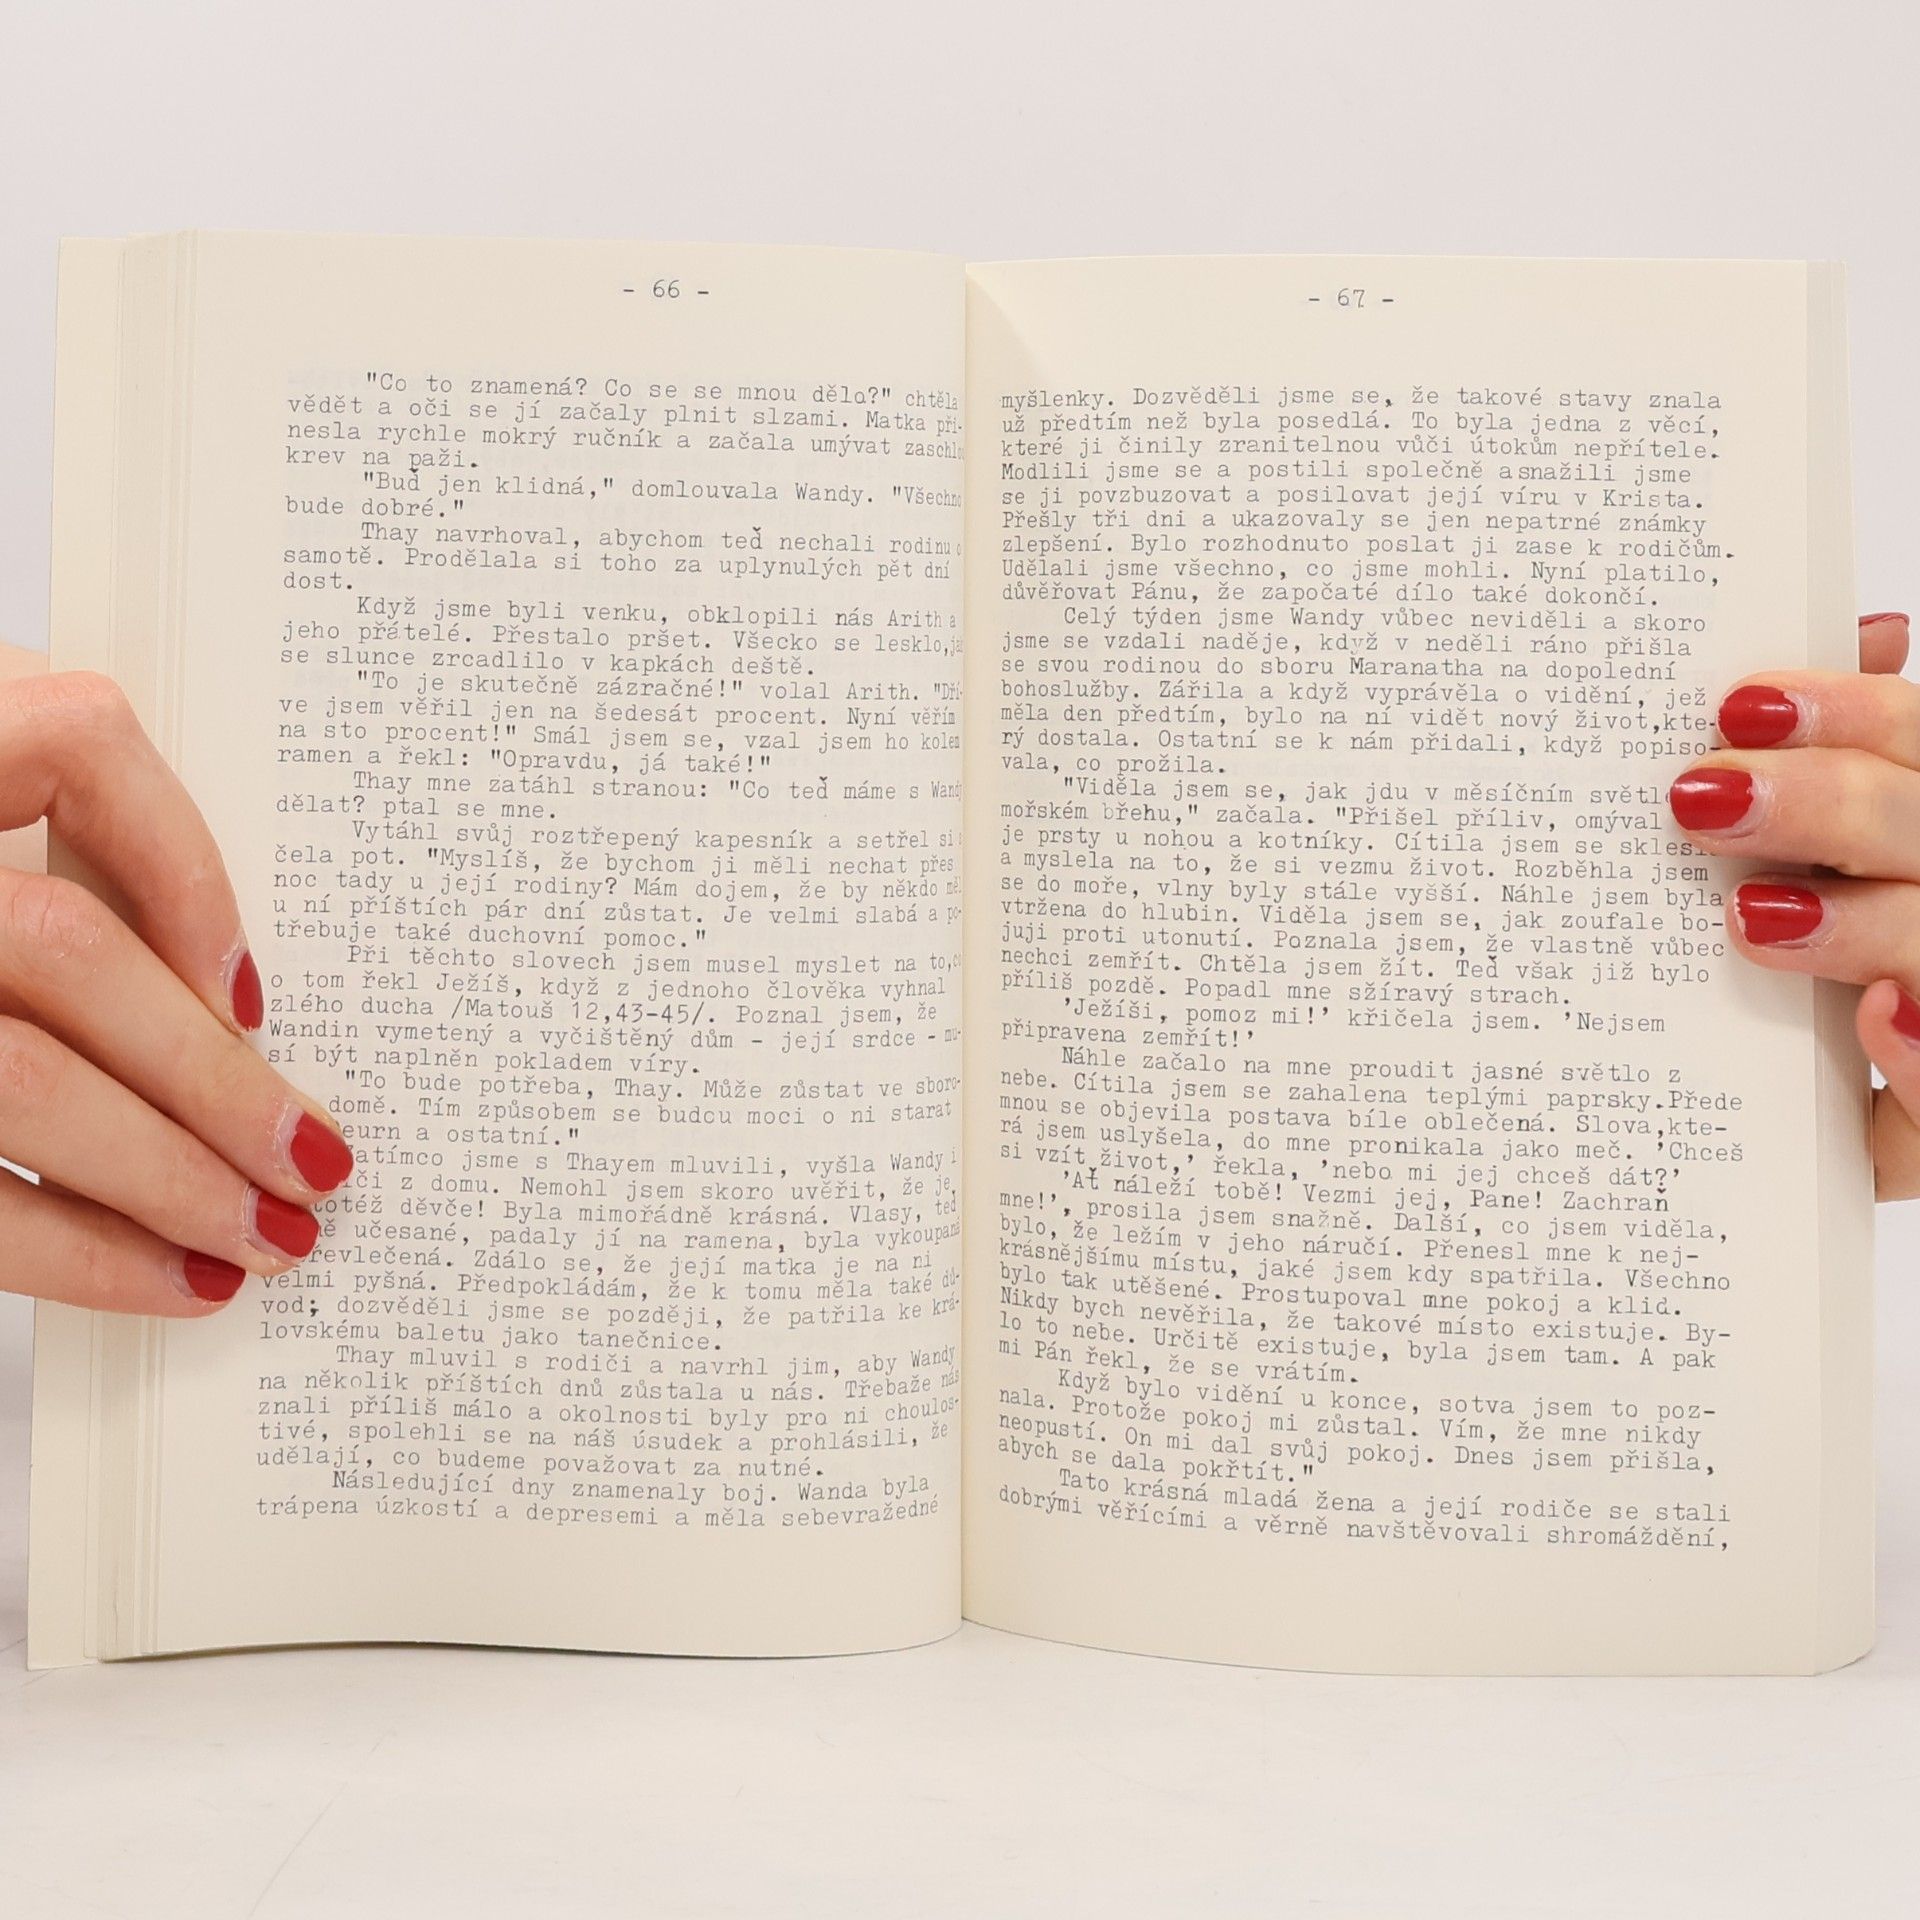 - 66 -
"Co to znamená? Co se se mnou dělo?" chtěla
vědět a oči se jí začaly plnit slzami. Matka při-
nesla rychle mokrý ručník a začala umývat
krev na paži.
"Buď jen klidná," domlouvala Wandy. "Všechno
bude dobré."
Thay navrhoval, abychom teď nechali rodinu o
samotě. Prodělala si toho za uplynulých pět dní
dost.
Když jsme byli venku, obklopili nás Arith a
jeho přátelé. Přestalo pršet. Všecko se lesklo,
se slunce zrcadlilo v kapkách deště.
"To je skutečně zázračné!" volal Arith. "Dří-
ve jsem věřil jen na šedesát procent. Nyní věřím
na sto procent!" Smál jsem se, vzal jsem ho kolem
ramen a řekl: "Opravdu, já také!"
Thay mne zatáhl stranou: "Co teď máme s
dělat? ptal se mne.
Vytáhl svůj roztřepený kapesník a setřel si
čela pot. "Myslíš, že bychom ji měli nechat přes
noc tady u její rodiny? Mám dojem, že by někdo
u ní příštích pár dní zůstat. Je velmi slabá a po-
třebuje také duchovní pomoc."
Při těchto slovech jsem musel myslet na to,
o tom řekl Ježíš, když z jednoho člověka vyhnal
zlého ducha /Matouš 12,43-45/. Poznal jsem, že
Wandin vymetený a vyčištěný dům - její srdce - mu-
sí být naplněn pokladem víry.
"To bude potřeba, Thay. Může zůstat ve sboro-
domě. Tím způsobem se budou moci o ni starat
a ostatní."
Zatímco jsme s Thayem mluvili, vyšla Wandy i
z domu. Nemohl jsem skoro uvěřit, že je
totéž děvče! Byla mimořádně krásná. Vlasy, teď
učesané, padaly jí na ramena, byla vykoupaná
převlečená. Zdálo se, že její matka je na ni
velmi pyšná. Předpokládám, že k tomu měla také dů-
vod; dozvěděli jsme se později, že patřila ke krá-
lovskému baletu jako tanečnice.
Thay mluvil s rodiči a navrhl jim, aby Wandy
na několik příštích dnů zůstala u nás. Třebaže nás
znali příliš málo a okolnosti byly pro ni choulos-
tivé, spolehli se na náš úsudek a prohlásili, že
udělají, co budeme považovat za nutné.
Následující dny znamenaly boj. Wanda byla
trápena úzkostí a depresemi a měla sebevražedné
- 67 -
myšlenky. Dozvěděli jsme se, že takové stavy znala
už předtím než byla posedlá. To byla jedna z věcí,
které ji činily zranitelnou vůči útokům nepřítele.
Modlili jsme se a postili společně asnažili jsme
se ji povzbuzovat a posilovat její víru v Krista.
Přešly tři dni a ukazovaly se jen nepatrné známky
zlepšení. Bylo rozhodnuto poslat ji zase k rodičům.
Udělali jsme všechno, co jsme mohli. Nyní platilo,
důvěřovat Pánu, že započaté dílo také dokončí.
Celý týden jsme Wandy vůbec neviděli a skoro
jsme se vzdali naděje, když v neděli ráno přišla
se svou rodinou do sboru Maranatha na dopolední
bohoslužby. Zářila a když vyprávěla o vidění, jež
měla den předtím, bylo na ní vidět nový život,kte-
rý dostala. Ostatní se k nám přidali, když popiso-
vala, co prožila.
"Viděla jsem se, jak jdu v měsíčním
mořském břehu," začala. "Přišel příliv, omýval
je prsty u nohou a kotníky. Cítila jsem se
a myslela na to, že si vezmu život. Rozběhla jsem
se do moře, vlny byly stále vyšší. Náhle jsem byla
vtržena do hlubin. Viděla jsem se, jak zoufale bo-
juji proti utonutí. Poznala jsem, že vlastně vůbec
nechci zemřít. Chtěla jsem žít. Teď však již bylo
příliš pozdě. Popadl mne sžíravý strach.
'Ježíši, pomoz mi!' křičela jsem. 'Nejsem
připravena zemřít!'
Náhle začalo na mne proudit jasné světlo z
nebe. Cítila jsem se zahalena teplými paprsky.Přede
mnou se objevila postava bíle oblečená. Slova,kte-
rá jsem uslyšela, do mne pronikala jako meč. 'Chceš
si vzít život,' řekla, 'nebo mi jej chceš dát?'
'Ať náleží tobě! Vezmi jej, Pane! Zachraň
mne!', prosila jsem snažně. Další, co jsem viděla,
bylo, že ležím v jeho náručí. Přenesl mne k nej-
krásnějšímu místu, jaké jsem kdy spatřila. Všechno
bylo tak utěšené. Prostupoval mne pokoj a klid.
Nikdy bych nevěřila, že takové místo existuje. By-
lo to nebe. Určitě existuje, byla jsem tam. A pak
mi Pán řekl, že se vrátím.
Když bylo vidění u konce, sotva jsem to poz-
nala. Protože pokoj mi zůstal. Vím, že mne nikdy
neopustí. On mi dal svůj pokoj. Dnes jsem přišla,
abych se dala pokřtít."
Tato krásná mladá žena a její rodiče se stali
dobrými věřícími a věrně navštěvovali shromáždění,